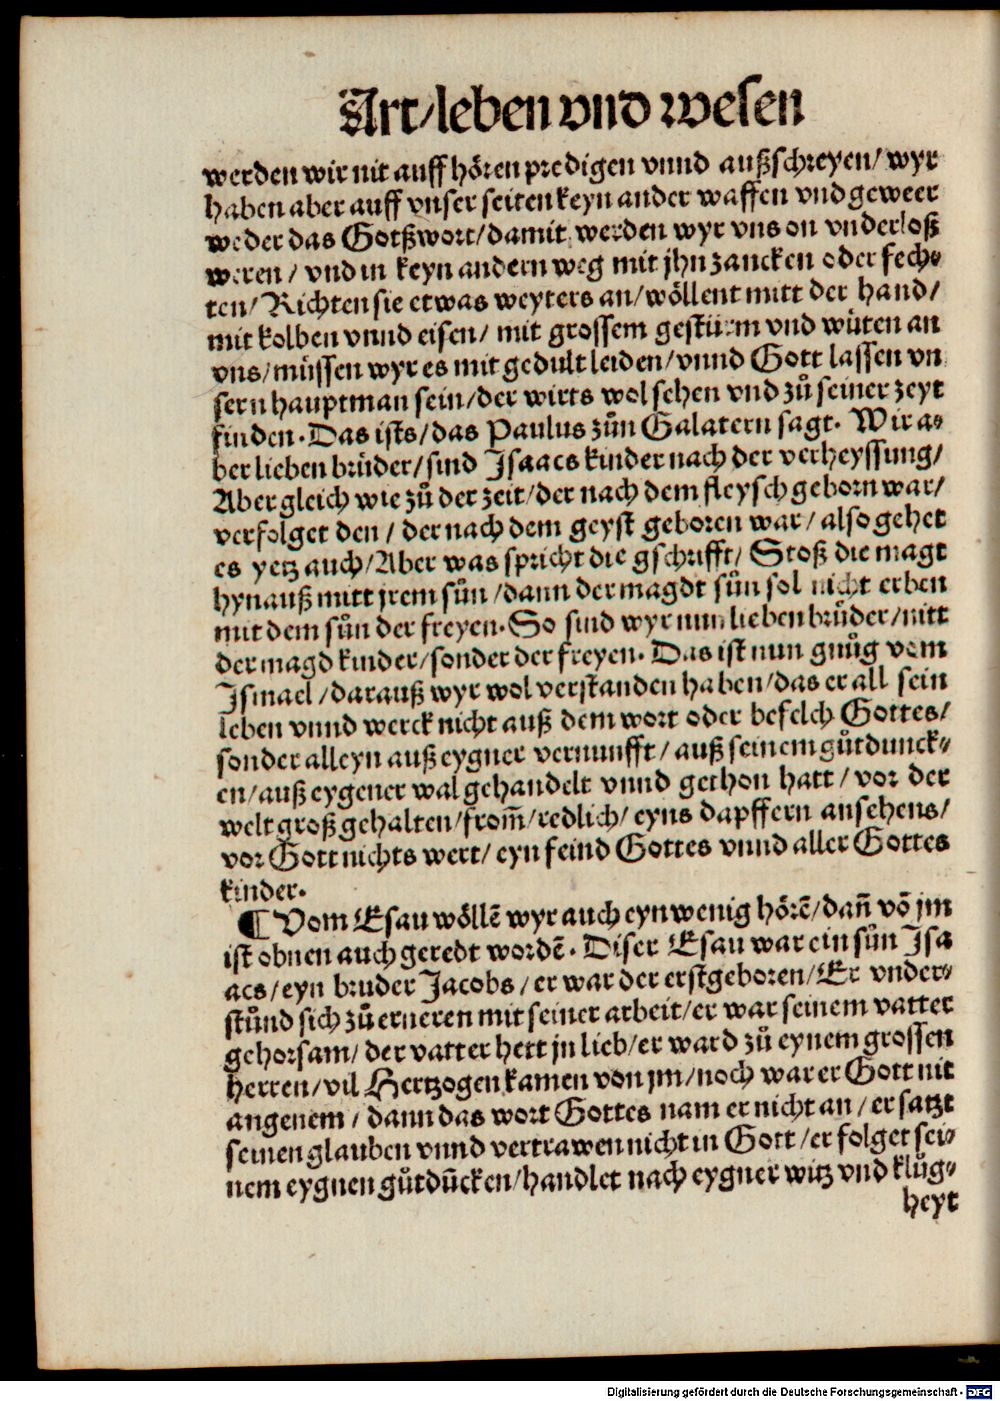 Art/leben vnd wesen
werden wir nit auff hören predigen vnnd außschreyen/ wyr
haben aber auff vnser seiten keyn ander waffen vnd geweer
weder das Gotßwort/ damit werden wyr vns on vnderloß
weren/ vnd in keyn andern weg mit jhn zancken oder fech⸗
ten/ Richten sie etwas weyters an/ wöllent mitt der hand/
mit kolben vnnd eisen/ mit grossem gestürm vnd wüten an
vns/ müssen wyr es mit gedult leiden/ vnnd Gott lassen vn
sern hauptman sein/ der wirts wol sehen vnd zů seiner zeyt
finden. Das ists/ das Paulus zůn Galatern sagt. Wir a⸗
ber lieben brüder/ sind Isaacs kinder nach der verheyssung/
Aber gleich wie zů der zeit/ der nach dem fleysch geborn war/
verfolget den/ der nach dem geyst geboren war/ also gehet
es yetz auch/ Aber was spricht die gschrifft/ Stoß die magt
hynauß mitt jrem sůn/ dann der magdt sůn sol nicht erben
mit dem sůn der freyen. So sind wyr nun lieben brůder/ nitt
der magd kinder/ sonder der freyen. Das ist nun gnůg vom
Ismael/ darauß wyr wol verstanden haben/ das er all sein
leben vnnd werck nicht auß dem wort oder befelch Gottes/
sonder alleyn auß eygner vernunfft/ auß seinem gůtdunck⸗
en/ auß eygener wal gehandelt vnnd gethon hatt/ vor der
welt groß gehalten/ from̃/ redlich/ eyns dapffern ansehens/
vor Gott nichts wert/ eyn feind Gottes vnnd aller Gottes
kinder.
¶ Vom Esau wöllẽ wyr auch eyn wenig hörẽ/ dañ võ jm
ist obnen auch geredt wordẽ. Diser Esau war ein sůn Isa
acs/ eyn bruder Jacobs/ er war der erstgeboren/ Er vnder⸗
stůnd sich zů erneren mit seiner arbeit/ er war seinem vatter
gehorsam/ der vatter hett jn lieb/ er ward zů eynem grossen
herren/ vil Hertzogen kamen von jm/ noch war er Gott nit
angenem/ dann das wort Gottes nam er nicht an/ er satzt
seinen glauben vnnd vertrawen nicht in Gott/ er folget sei⸗
nem eygnen gůtdũcken/ handlet nach eygner witz vnd klůg⸗
heyt
Digitalisierung gefördert durch die Deutsche Forschungsgemeinschaft - DFG